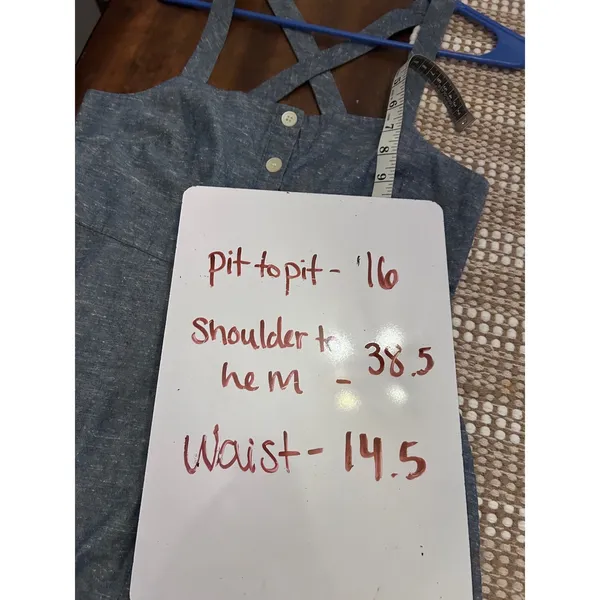 5
6
7
8
9
pit to pit - 16
Shoulder to
hem - 38.5
Waist - 14.5